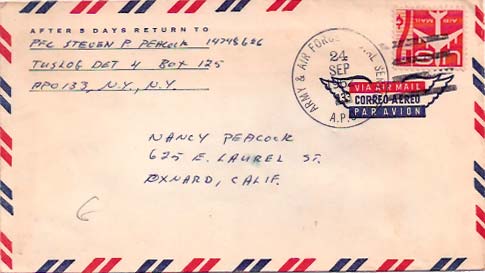 AFTER 5 DAYS RETURN TO
PFC STEVEN P. PEACOCK 14748626
TUSLOG DET 4 BOX 125
APO 133, N.Y., N.Y.
ARMY & AIR FORCE
24
SEP
A.P.O.
VIA AIR MAIL
CORREO AEREO
PAR AVION
NANCY PEACOCK
625 E. LAUREL ST.
OXNARD, CALIF.